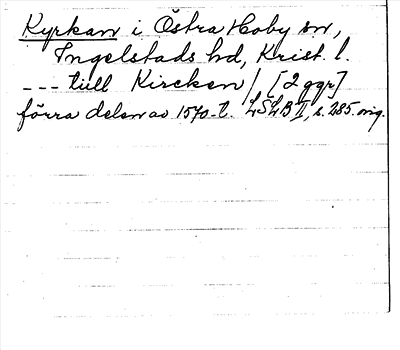 Kyrkan i Östra Hoby sn,
Ingelstads hd, Krist. l.
--- tiill Kircken / [2 ggr]
förra delen av 1570-t. LSLB II, s. 285. orig.